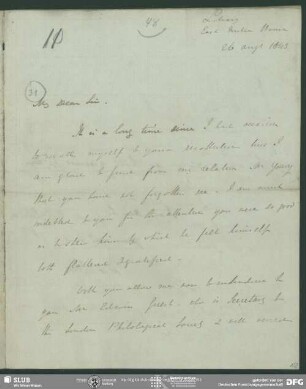 48
Library
East India House
26 Augt 1843
18
31
My dear Sir.
It is a long time since I had occasion
to recall myself to your recollection but I
am glad to find from my relation Mr Young
that you have not forgotten me. I am much
indebted to you for the attention you were so good
as to shew him & which he felt himself
both flattered & gratified.
Will you allow me now to introduce to
you Mr Edwin Guest who is Secretary to
the London Philological Society & will
SLUB
Wir führen Wissen.
DFG